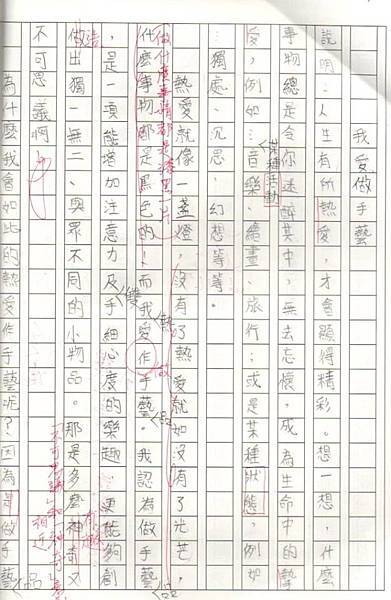 我愛做手藝
說明:人生有所熱愛,才會顯得精彩。想一想,什麼
事物總是令你迷醉其中,無去忘懷,成為生命中的摯
某種活動
愛,例如…音樂、繪畫、旅行;或是某種狀態,例如
…獨處、沉思、幻想等等。
熱愛就像一盞燈,沒有了熱愛就如沒有了光芒,
做什麼事情都是漆黑一片
熱
做
品
什麼事物都是黑色的!而我愛作手藝。我認為做手藝
品
雙
,是一項能增加注意力及手細心度的樂趣,更能夠創
造
有趣
做出獨一無二、與眾不同的小物品。那是多麼神奇又
不可思議」和「神奇」意
相近
不可思議啊!
為什麼我會如此的熱愛作手藝呢?因為是做手藝
品